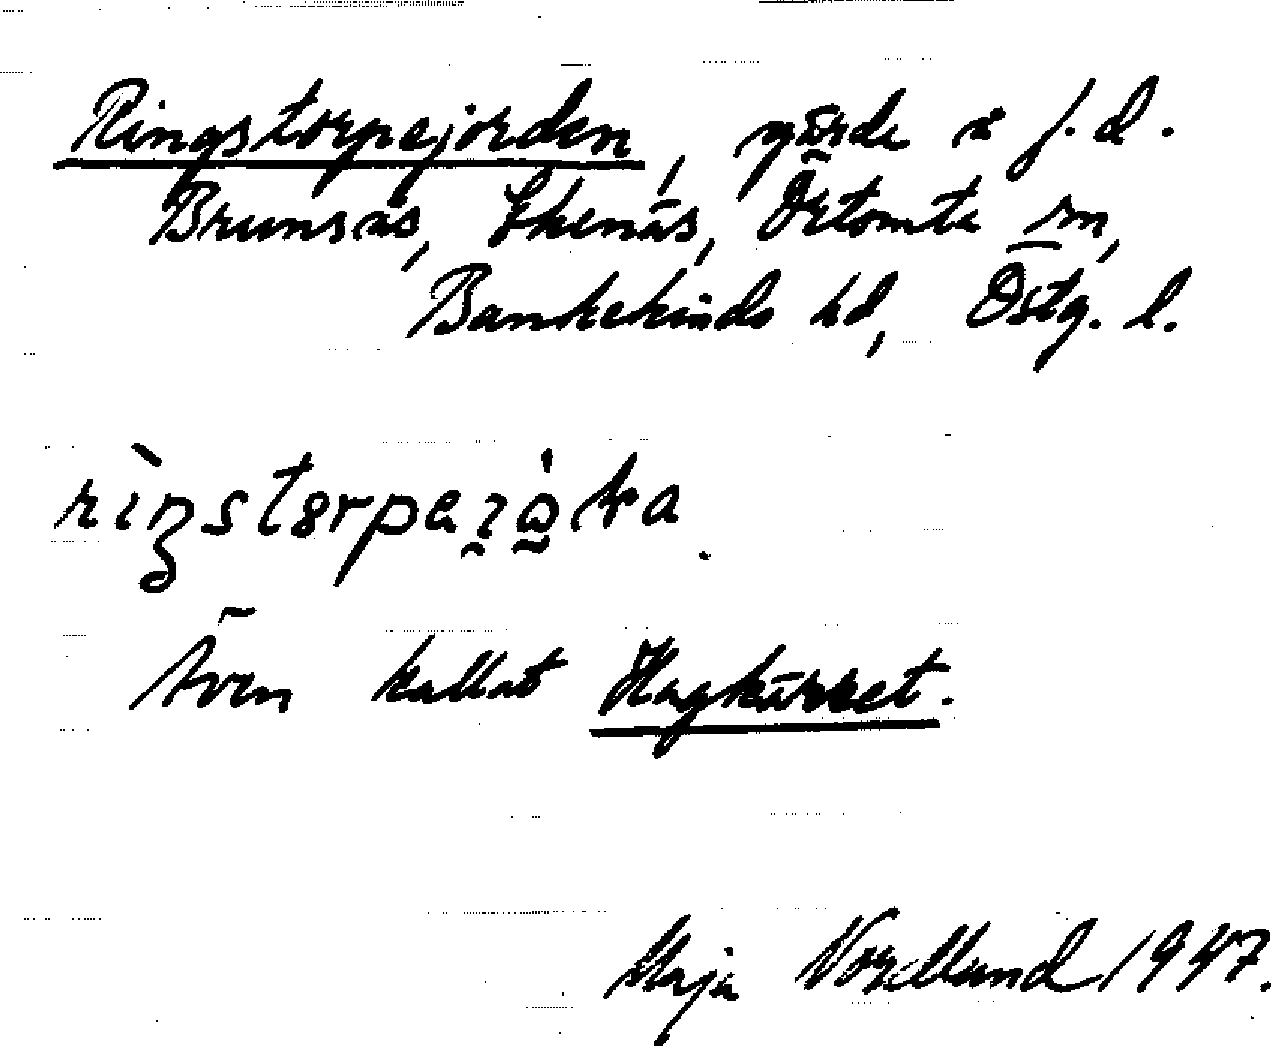 Ringstorpejorden, gärde å f.d.
Brunsås, Ekenäs, Örtomta sn,
Bankekinds hd, Östg. l.
Även kallat Hagkärret.
Maja Nordlund 1947.